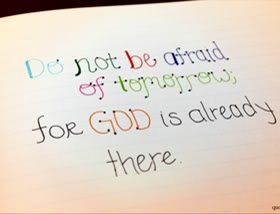 Do not be afraid
of tomorrow;
for GOD is already
there.